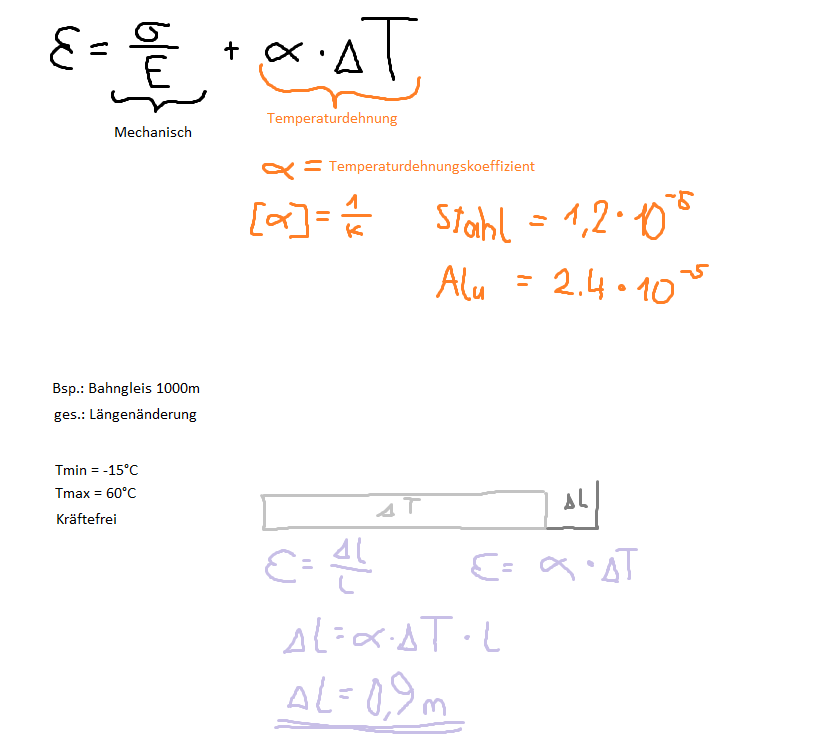 ε = σ/E + α · ΔT
Mechanisch
Temperaturdehnung
α = Temperaturdehnungskoeffizient
[α] = 1/K Stahl = 1,2 · 10⁻⁵
Alu = 2.4 · 10⁻⁵
Bsp.: Bahngleis 1000m
ges.: Längenänderung
Tmin = -15°C
Tmax = 60°C
Kräftefrei
ΔT ΔL
ε = Δl/L ε = α · ΔT
Δl = α · ΔT · L
ΔL = 0,9 m